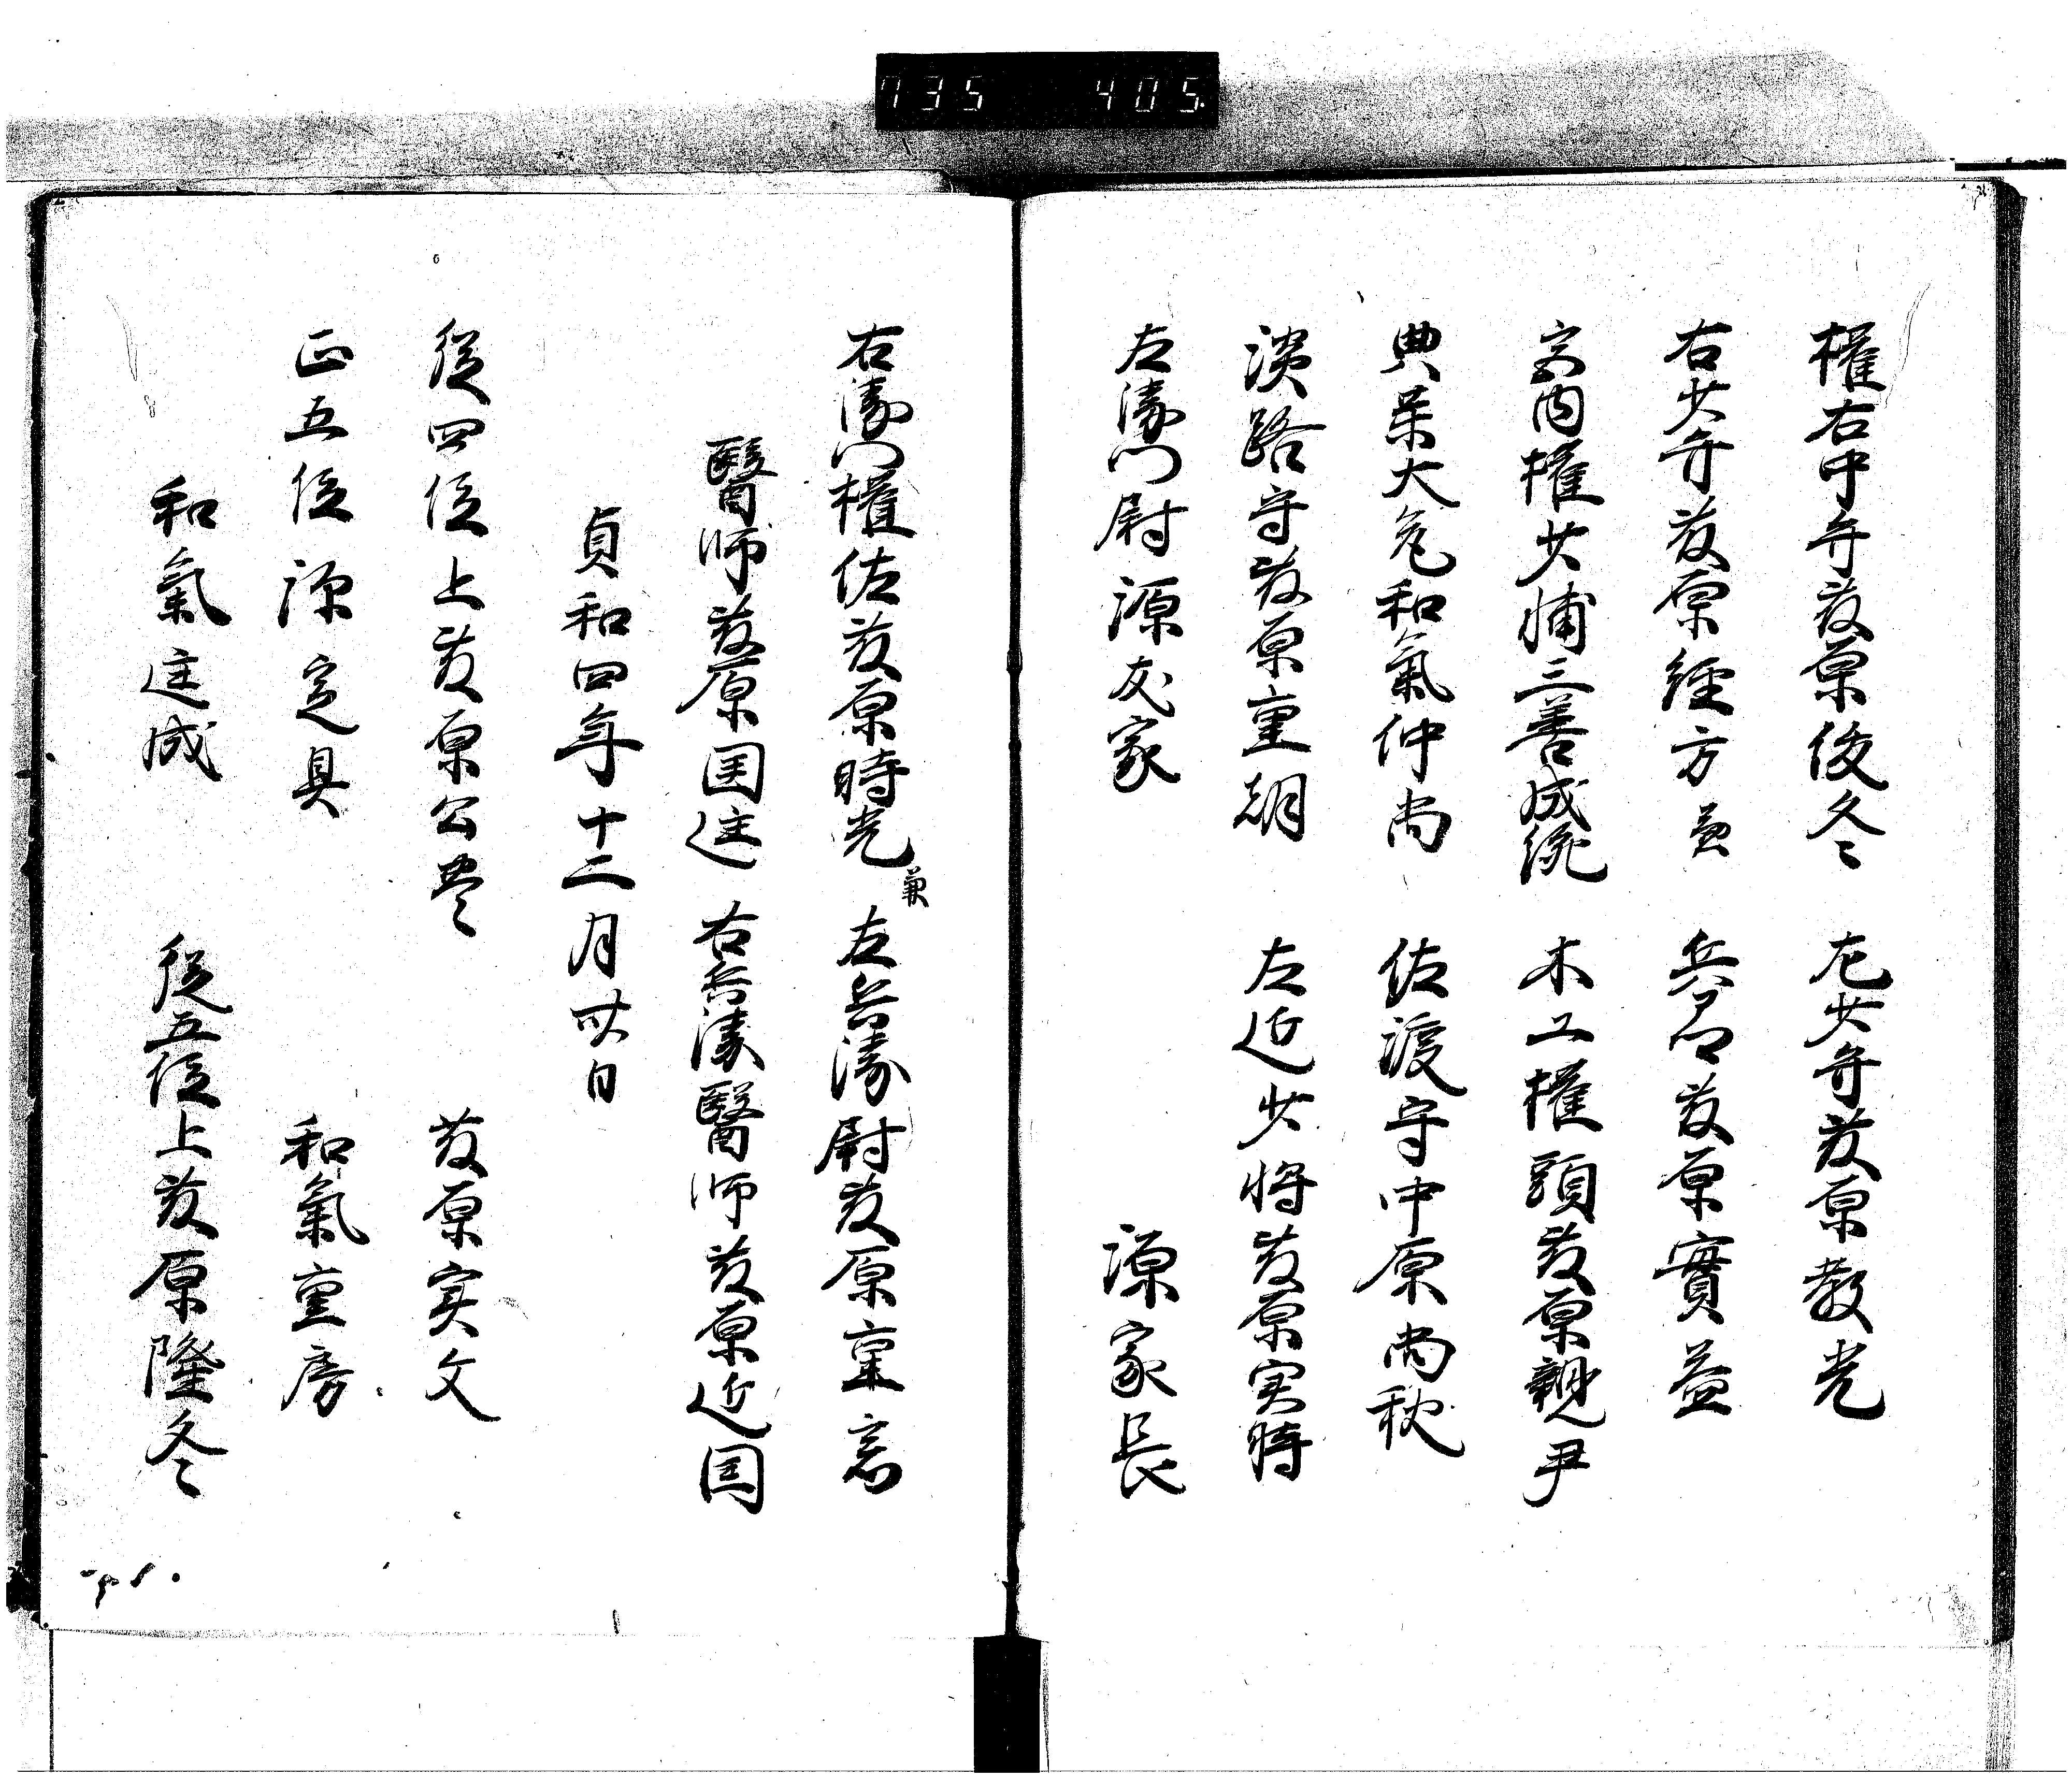 735 405
權右中弁藤原俊冬 左少弁藤原教光
右少弁藤原経方兼 兵部藤原實益
宮内權少輔三善成統 木工權頭藤原親尹
典薬大允和氣仲尚 佐渡守中原尚秋
淡路守藤原重胡 左近少将藤原実時
左衛門尉源友家 源家長
右衛門權佐藤原時光兼 左兵衛尉藤原重
醫師藤原国廷 右兵衛醫師藤原近国
貞和四年十二月廿日
従四位上藤原公豊 藤原実文
正五位源定具 和氣重房
和氣廷成 従五位上藤原隆冬